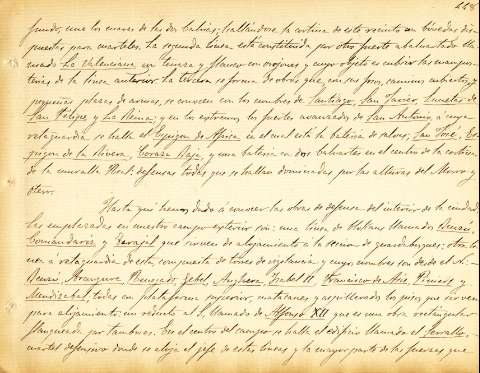 668
fundo, une los mares de las dos bahias; hallándose la cortina de este recinto en bóvedas dis
puestas para cuarteles. La segunda linea está constituida por otro fuerte abaluartado lla
mado La Valenciana con tenaza y flancos con orejones y cuyo objeto es cubrir las mampos
terias de la linea anterior. La tercera se forma de obras que, con sus fosos, caminos cubiertos, y
pequeñas plazas de armas, se conocen con los nombres de Santiago, San Javier, Lunetas de
San Felipe y La Reina; y en los extremos los fuertes avanzados de San Antonio á cuya
retaguardia se halla el Espigon de Africa en el cual está la bateria de salvas, San José, Es
pigon de la Rivera, Coraza Baja, y una bateria con dos baluartes en el centro de la cortina
de la muralla Real: defensas todas que se hallan dominadas por las alturas del Morro y
Otero.
Hasta aqui hemos dado á conocer las obras de defensa del interior de la ciudad.
Las emplazadas en nuestro campo exterior son: una linea de blokaus llamados Benzú,
Comandaris y Tarajal que sirven de alojamiento á la seccion de guardabuques; otra li
nea á retaguardia de esta compuesta de torres de vigilancia y cuyos nombres son desde el N.
Benzú, Aranguren, Renegado, Yebel, Anghera, Isabel II, Francisco de Asis, Piniers y
Mendizabal, todas con plataforma superior, matacanes y aspillerados los pisos que sirven
para alojamiento: un reducto al S. llamado de Alfonso XII que es una obra rectangular
flanqueada por tambores. En el centro del campo se halla el edificio llamado el Serrallo,
cuartel defensivo donde se aloja el jefe de estas lineas y la mayor parte de las fuerzas que